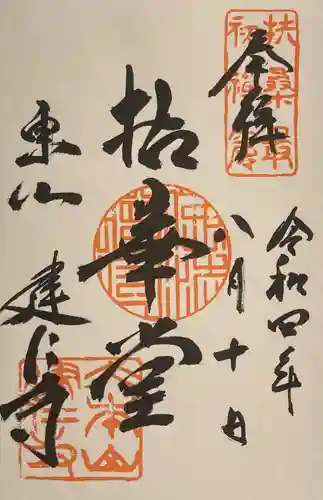 奉拝
扶桑最
初禅窟
令和四年
八月十日
拈華堂
東山
建仁寺